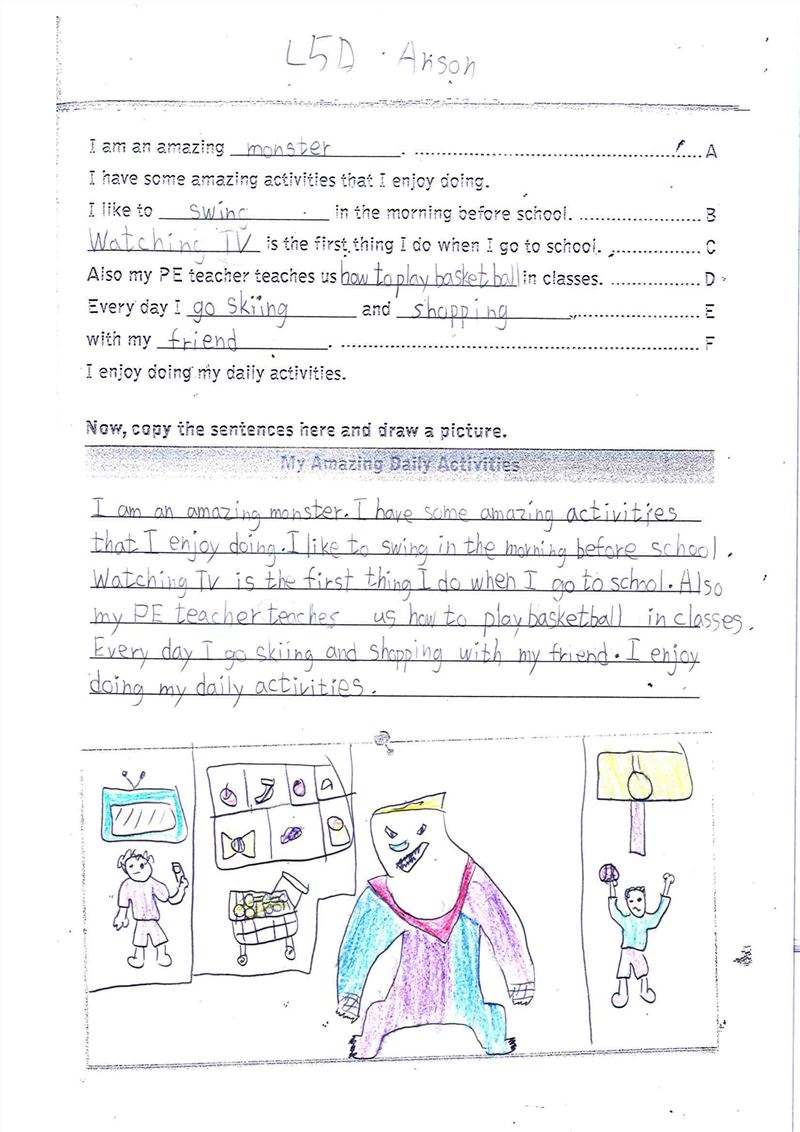 L5D · Anson
I am an amazing monster. ........ A
I have some amazing activities that I enjoy doing.
I like to swing in the morning before school. ........ B
Watching TV is the first thing I do when I go to school. ........ C
Also my PE teacher teaches us how to play basketball in classes. ........ D
Every day I go skiing and shopping ........ E
with my friend. ........ F
I enjoy doing my daily activities.
Now, copy the sentences here and draw a picture.
My Amazing Daily Activities
I am an amazing monster. I have some amazing activities
that I enjoy doing. I like to swing in the morning before school.
Watching TV is the first thing I do when I go to school. Also
my PE teacher teaches us how to play basketball in classes.
Every day I go skiing and shopping with my friend. I enjoy
doing my daily activities.